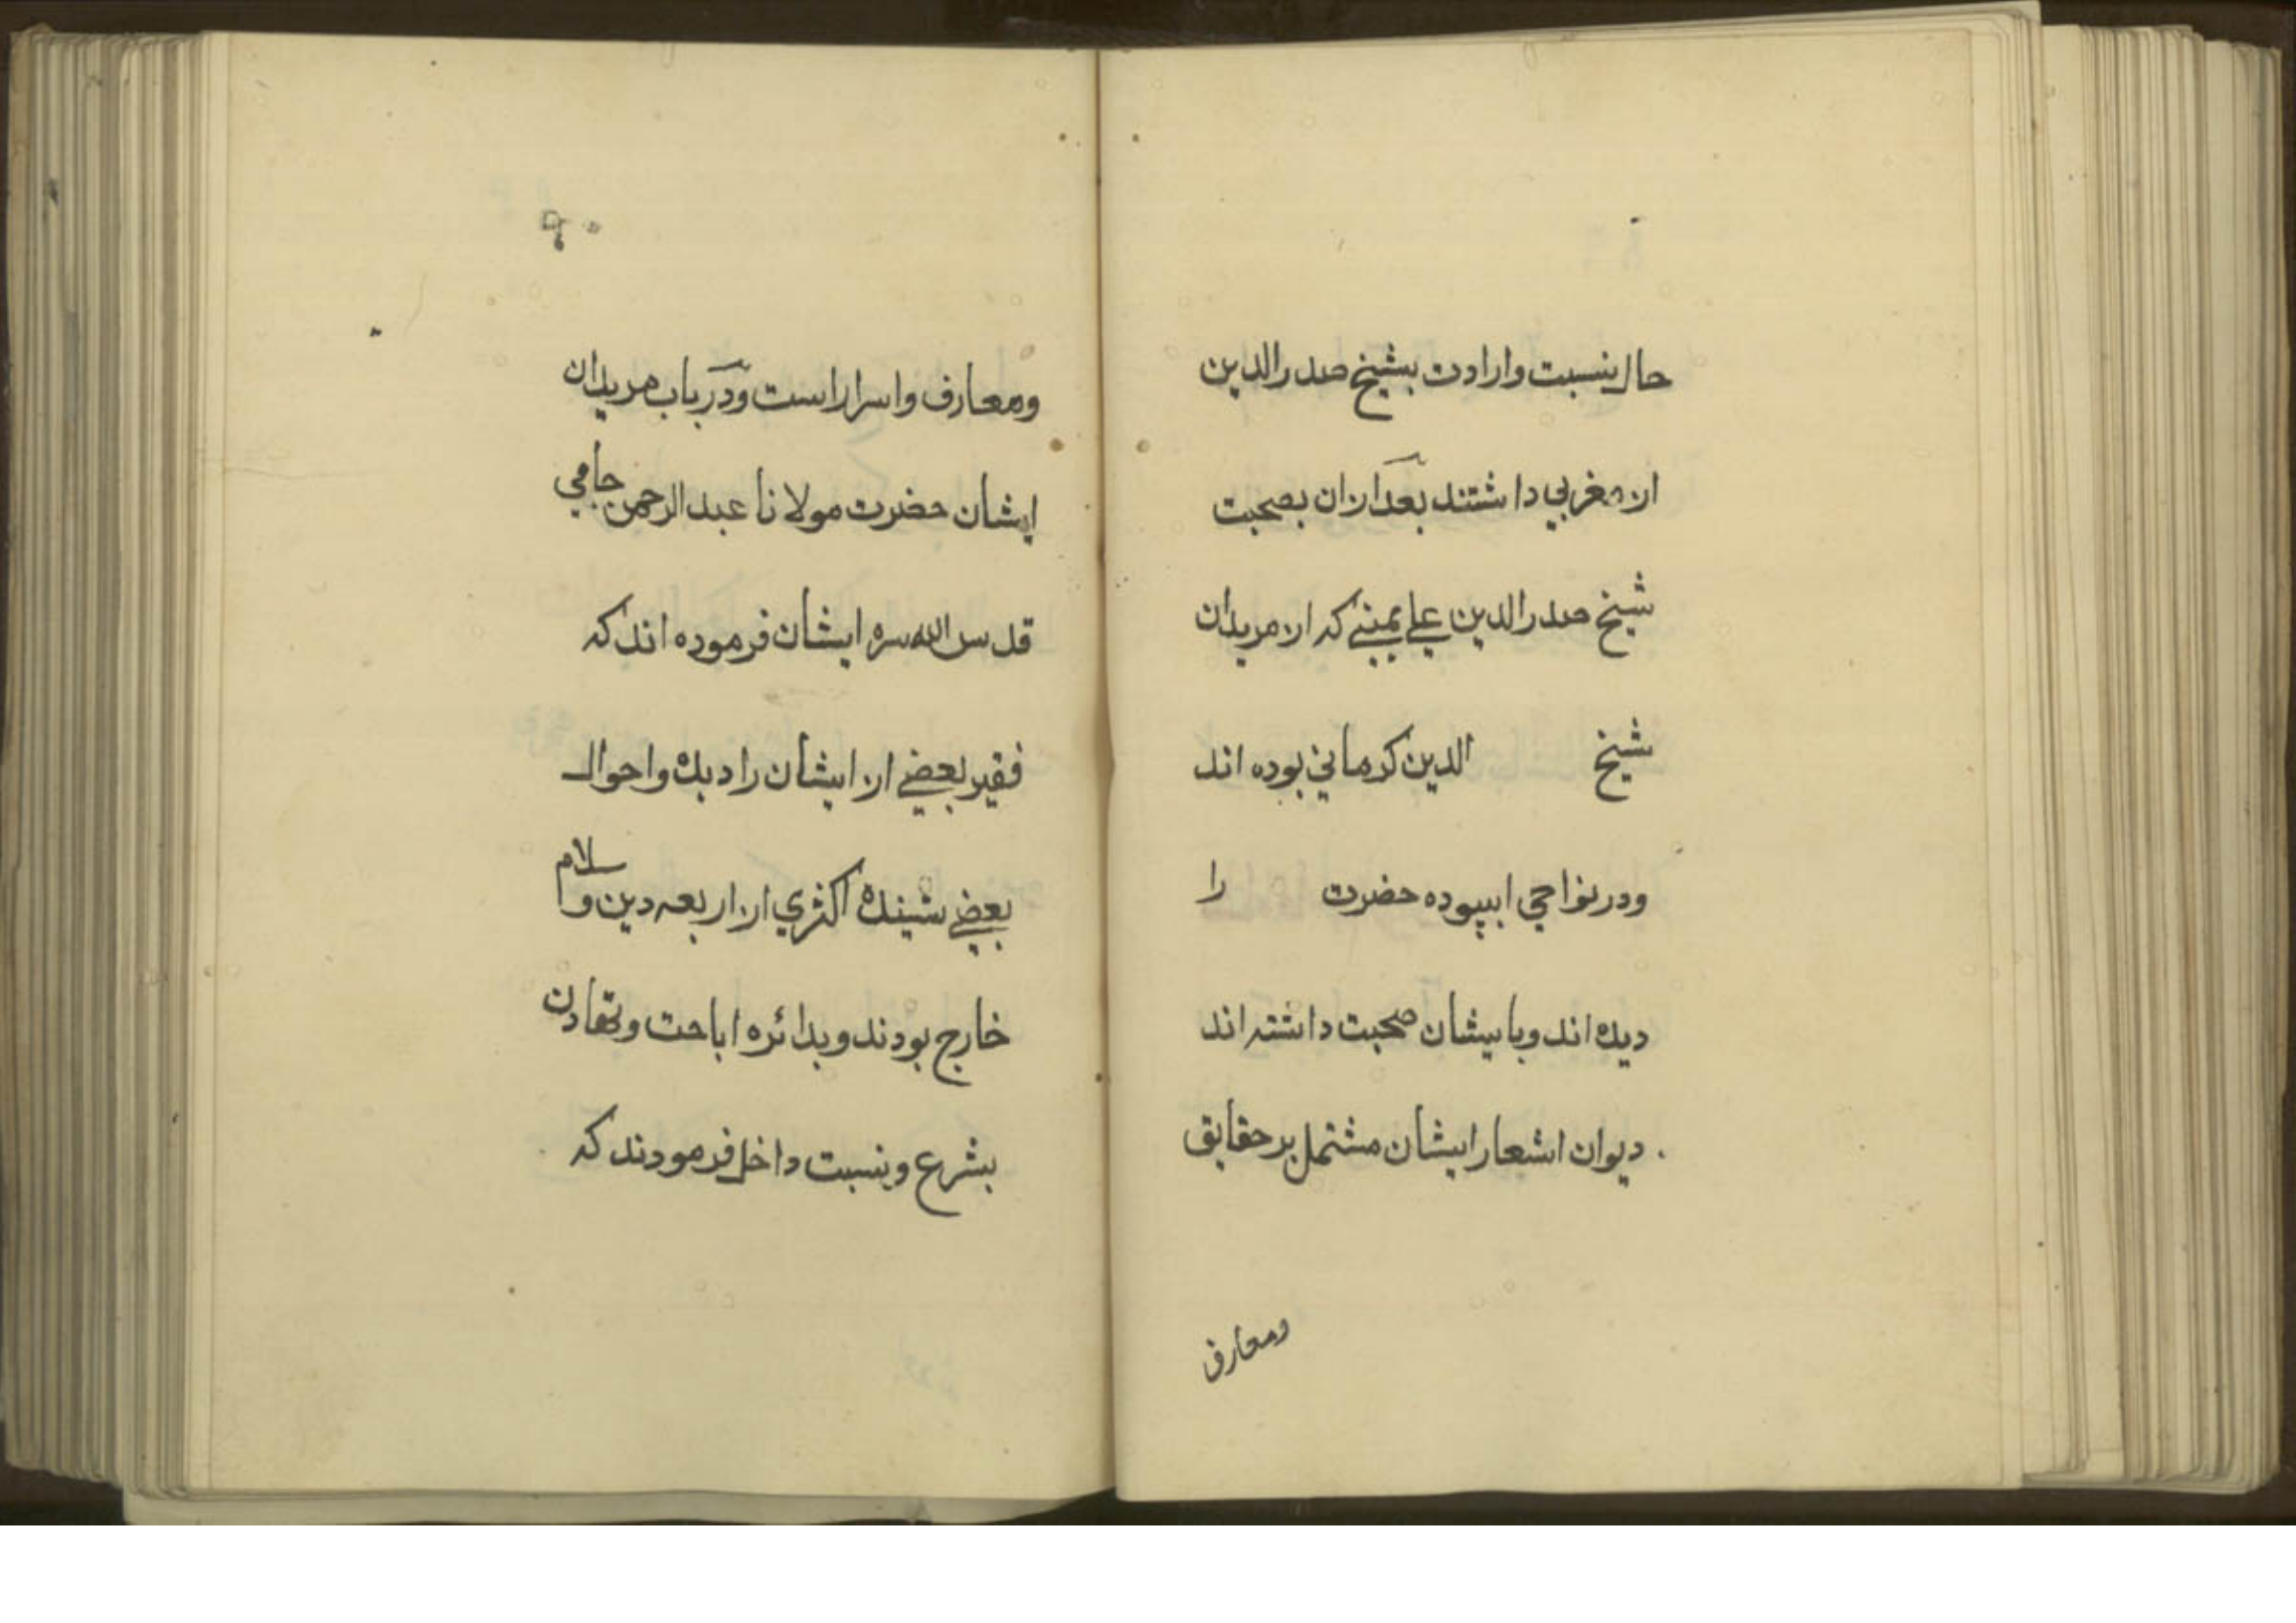 حال نسبت وارادت بشیخ صدرالدین
از مغربي داشتند بعدازان بصحبت
شیخ صدرالدین علي یمني که از مریدان
شیخ الدین کرماني بوده اند
ودر نواحي ابیوده حضرت را
دیده اند وبا ایشان صحبت داشته اند
دیوان اشعار ایشان مشتمل بر حقایق
ومعارف
۹۰
ومعارف واسرار است ودر باب مریدان
ایشان حضرت مولانا عبدالرحمن جامي
قدس الله سره ایشان فرموده اند که
فقیر بعضي از ایشان را دیده واحوال
بعضي شنیده اکثري از اربعه دین واسلام
خارج بودند وبدائره اباحت وتهاون
بشرع وبنسبت داخل فرمودند که